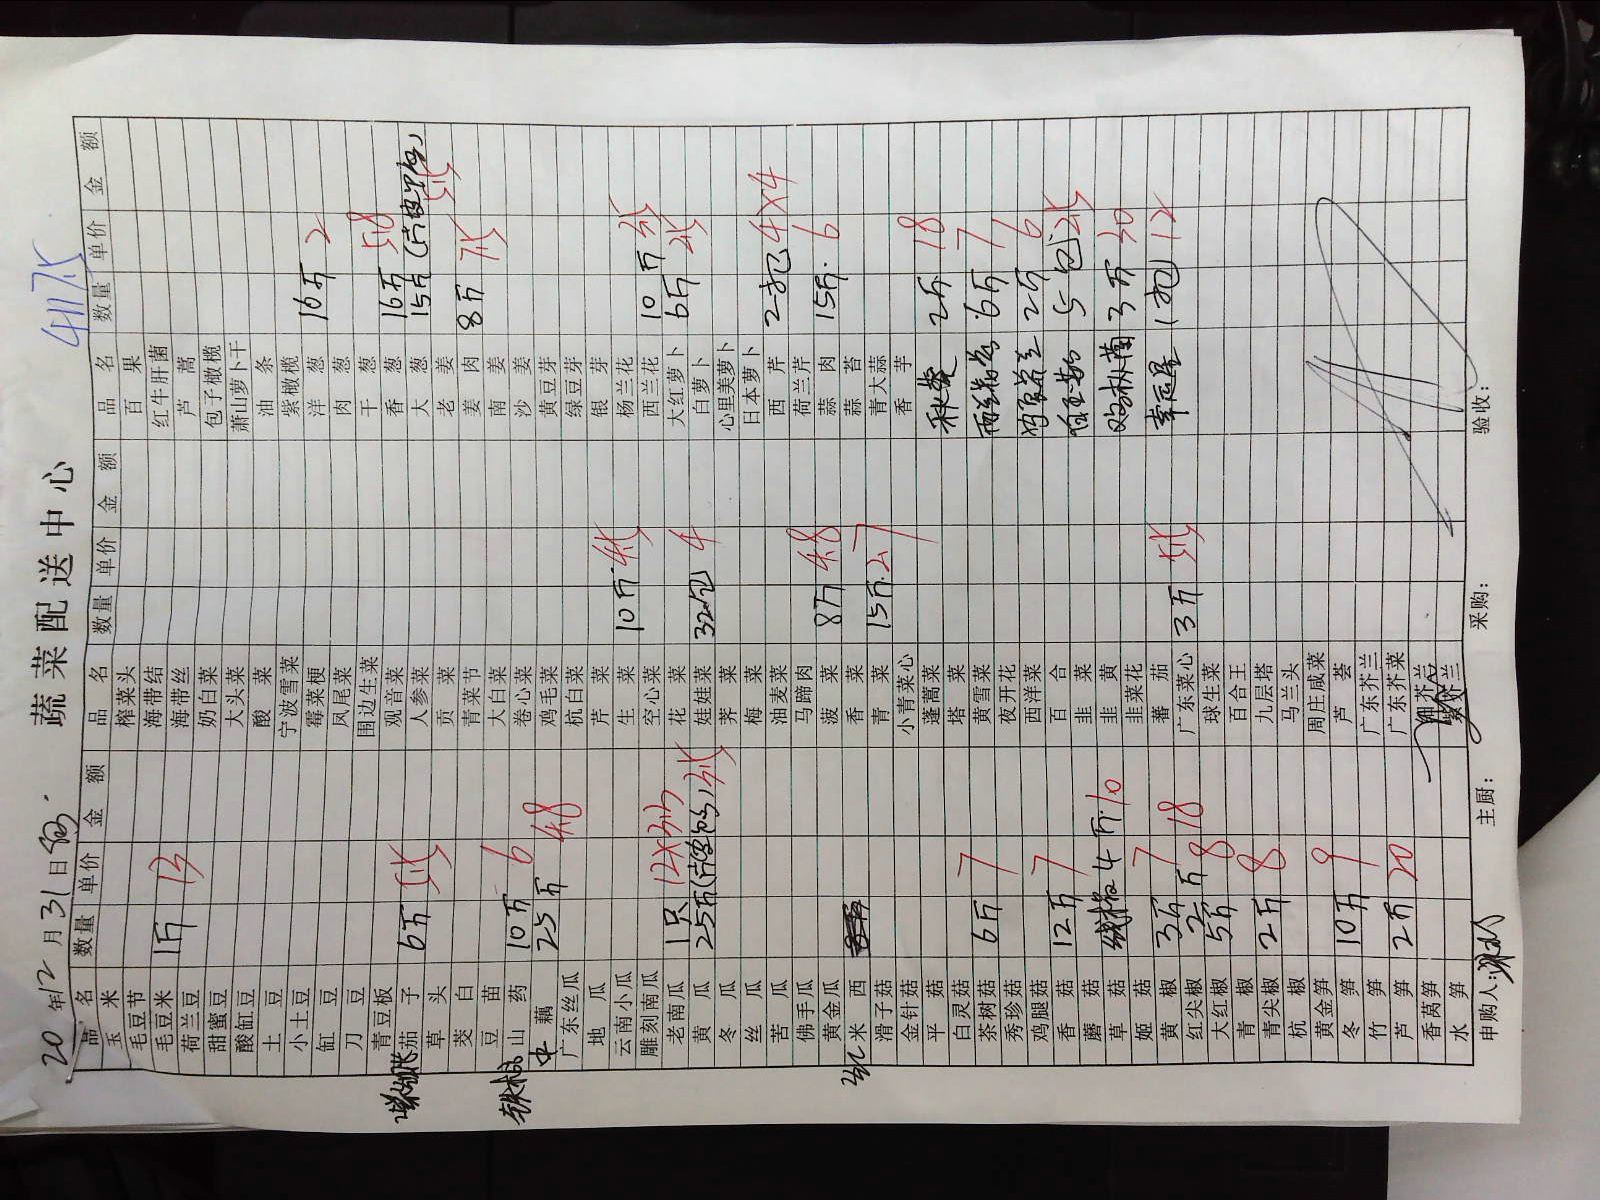 蔬菜配送中心
4175
20 年12 月31日
品名 数量 单价 金额
玉米
毛豆节
毛豆米 1斤 13
荷兰豆
甜蜜豆
酸缸豆
土豆
小土豆
缸豆
刀豆
青豆板
茄子 6斤 5.5
草头
茭白
豆苗
铁棍 山药 10斤 6
藕 25斤 4.8
广东丝瓜
地瓜
云南小瓜
雕刻南瓜
老南瓜 1只 12×3.5
黄瓜 25斤 3.5
冬瓜
丝瓜
苦瓜
佛手瓜
黄金瓜
米西
滑子菇
金针菇
平菇
白灵菇
茶树菇 6斤 7
秀珍菇
鸡腿菇
香菇 12斤 7
蘑菇
草菇 4斤 10
姬菇
黄椒 3斤 7
红尖椒 2斤 18
大红椒 5斤 8
青椒
青尖椒 2斤 8
杭椒
黄金笋
冬笋 10斤 9
竹笋
芦笋 2斤 20
香莴笋
水笋
品名 数量 单价 金额
榨菜头
海带结
海带丝
奶白菜
大头菜
酸菜
宁波雪菜
霉菜梗
凤尾菜
围边生菜
观音菜
人参菜
贡菜
青菜节
大白菜
卷心菜
鸡毛菜
杭白菜
芹菜
生菜 10斤 4.5
空心菜
花菜
娃娃菜 32包 4
荠菜
梅菜
油麦菜
马蹄肉
菠菜 8斤 4.8
香菜
青菜 15斤 2.7
小青菜心
蓬蒿菜
塔菜
黄雪菜
夜开花
西洋菜
百合
韭菜
韭黄
韭菜花
番茄
广东菜心 3斤 5.5
球生菜
百合王
九层塔
马兰头
周庄咸菜
芦荟
广东芥兰
广东芥菜
品名 数量 单价 金额
百果
红牛肝菌
芦蒿
包子橄榄
萧山萝卜干
油条
紫橄榄
洋葱 16斤 2
肉葱
干葱
香葱 16斤 5.8
大葱 15斤 5.5
老姜
姜肉 8斤 7.5
南姜
沙姜
黄豆芽
绿豆芽
银芽
杨兰花
西兰花 10斤 3.5
大红萝卜 6斤 2.5
白萝卜
心里美萝卜
日本萝卜
西芹 2把 4×4
荷兰芹
蒜肉 15斤 6
蒜苔
青大蒜
香芋
秋葵 2斤 18
6斤 7
2斤 6
5包 2.5
鸡枞菌 3斤 30
1包 12
申购人:
主厨:
采购:
验收: